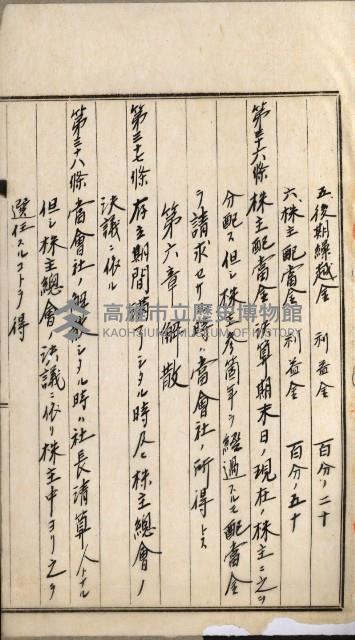 五、後期繰越金 利益金 百分ノ二十
六、株主配當金 利益金 百分ノ五十
第三十六條 株主配當金ハ決算期末日ノ現在ノ株主ニ之ヲ
分配ス但シ株 参箇年ヲ經過スルモ配當金
ヲ請求セサル時ハ當會社ノ所得トス
第六章 解散
第三十七條 存立期間満 シタル時及ヒ株主總會ノ
決議ニ依ル
第三十八條 當會社ノ解散シタル時ハ社長清算人トナル
但シ株主總會ノ決議ニ依リ株主中ヨリ之ヲ
選任スルコトヲ得
高雄市立歷史博物館
KAOHSIUNG MUSEUM OF HISTORY